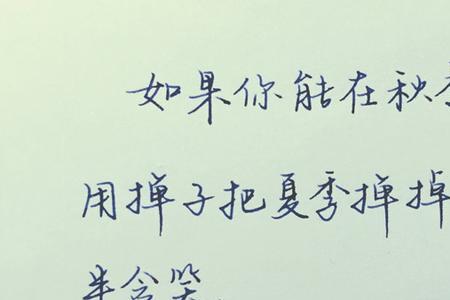 如果你能在秋
用掸子把夏季掸掉
半含笑